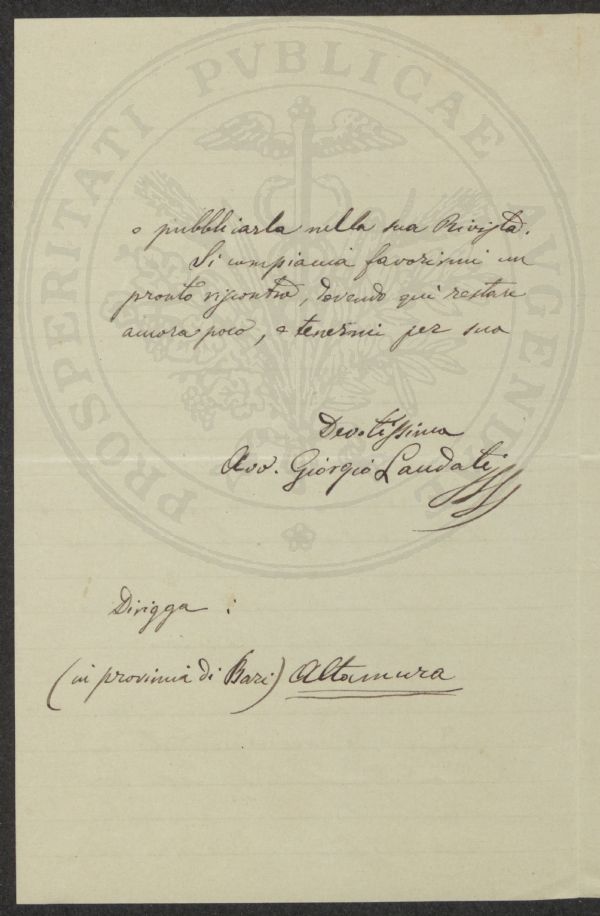 PROSPERITATI PVBLICAE AVGENDAE
o pubblicarla nella sua Rivista.
Si compiaccia favorirmi un
pronto riscontro, dovendo qui restare
ancora poco, e tenermi per suo
Devotissimo
Avv. Giorgio Laudati
Dirigga :
(in provincia di Bari) Altamura